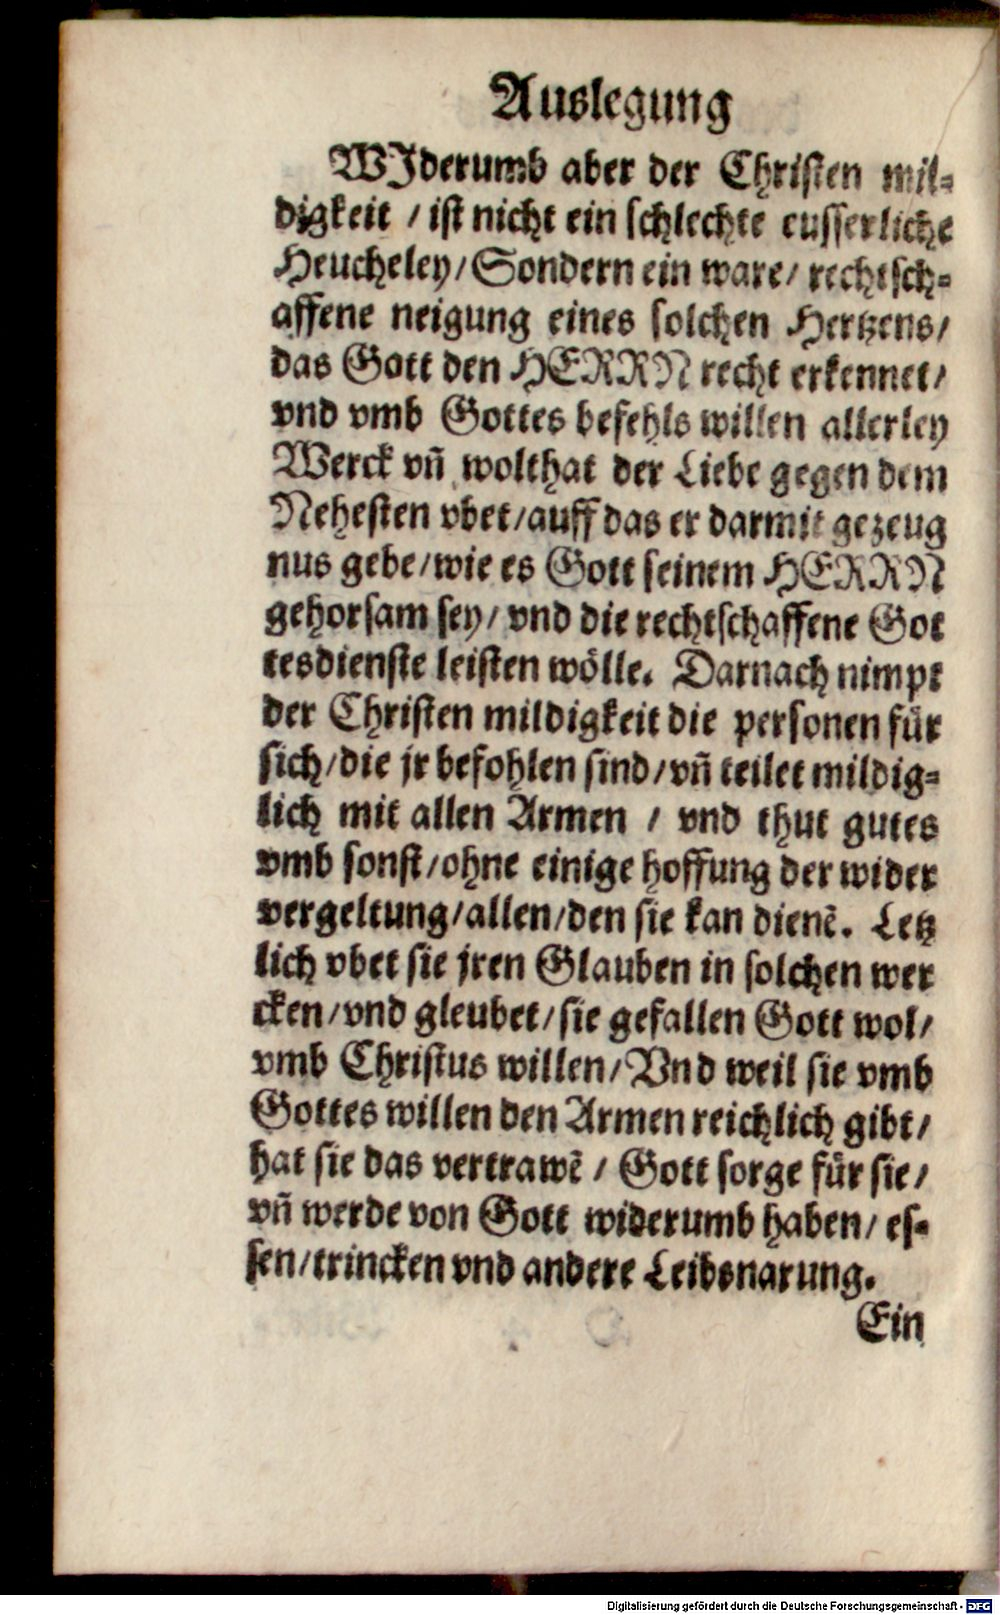 Auslegung
WJderumb aber der Christen mil-
digkeit / ist nicht ein schlechte eusserliche
Heucheley/ Sondern ein ware/ rechtsch-
affene neigung eines solchen Hertzens/
das Gott den HERRN recht erkennet/
vnd vmb Gottes befehls willen allerley
Werck vñ wolthat der Liebe gegen dem
Nehesten vbet/ auff das er darmit gezeug
nus gebe/ wie es Gott seinem HERRN
gehorsam sey/ vnd die rechtschaffene Got
tesdienste leisten wölle. Darnach nimpt
der Christen mildigkeit die personen für
sich/ die jr befohlen sind/ vñ teilet mildig-
lich mit allen Armen / vnd thut gutes
vmb sonst/ ohne einige hoffung der wider
vergeltung/ allen/ den sie kan dienẽ. Letz
lich vbet sie jren Glauben in solchen wer
cken/ vnd gleubet/ sie gefallen Gott wol/
vmb Christus willen/ Vnd weil sie vmb
Gottes willen den Armen reichlich gibt/
hat sie das vertrawẽ / Gott sorge für sie/
vñ werde von Gott widerumb haben/ es-
sen/ trincken vnd andere Leibsnarung.
Ein
Digitalisierung gefördert durch die Deutsche Forschungsgemeinschaft - DFG